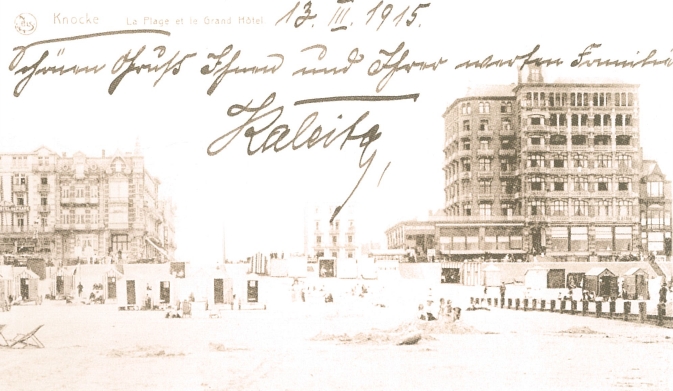 Knocke La Plage et le Grand Hôtel 13. III. 1915.
Schönen Gruß Ihnen und Ihrer werten Familie